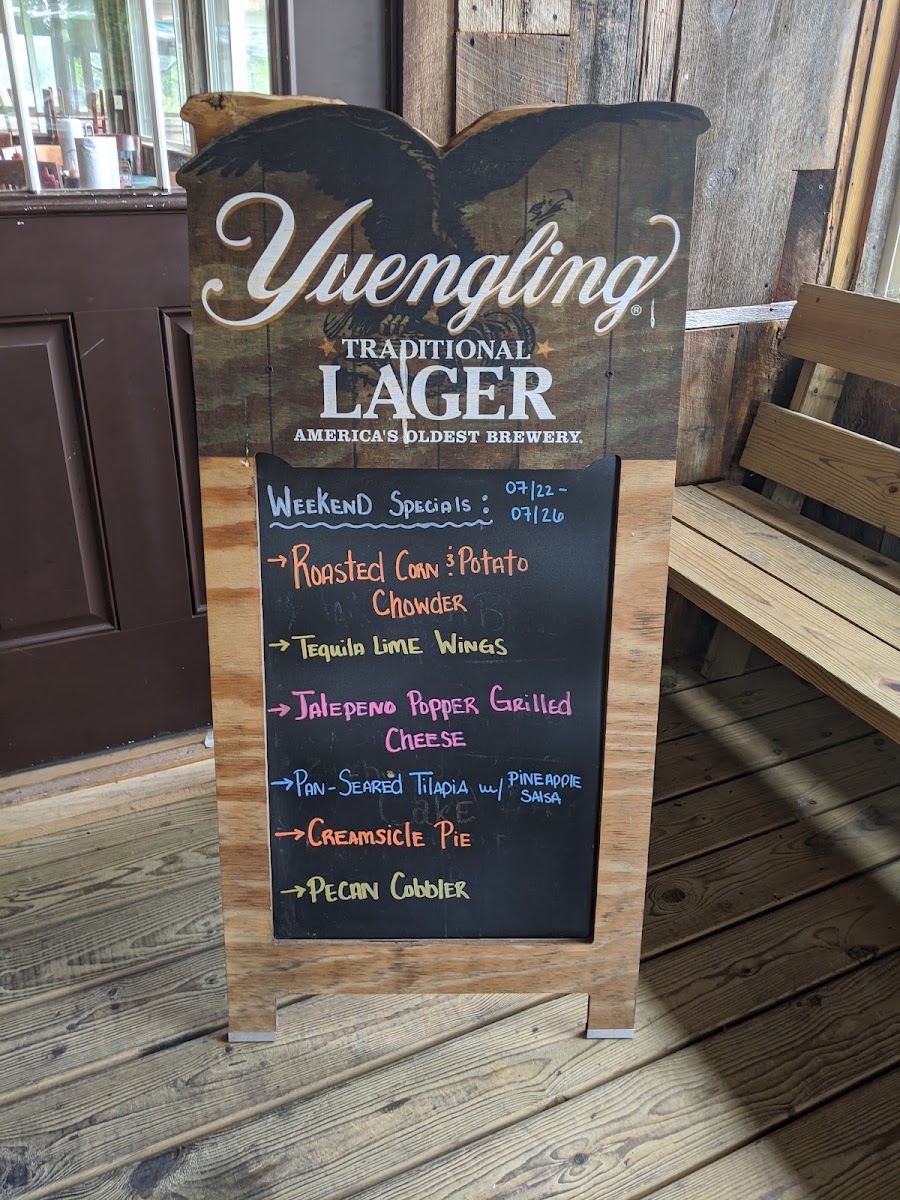 Yuengling®
TRADITIONAL
LAGER
AMERICA'S OLDEST BREWERY.
WEEKEND SPECIALS: 07/22-
07/26
→ROASTED CORN & POTATO
CHOWDER
→TEQUILA LIME WINGS
→JALEPENO POPPER GRILLED
CHEESE
→PAN-SEARED TILAPIA w/ PINEAPPLE
SALSA
CAKE
→CREAMSICLE PIE
→PECAN COBBLER